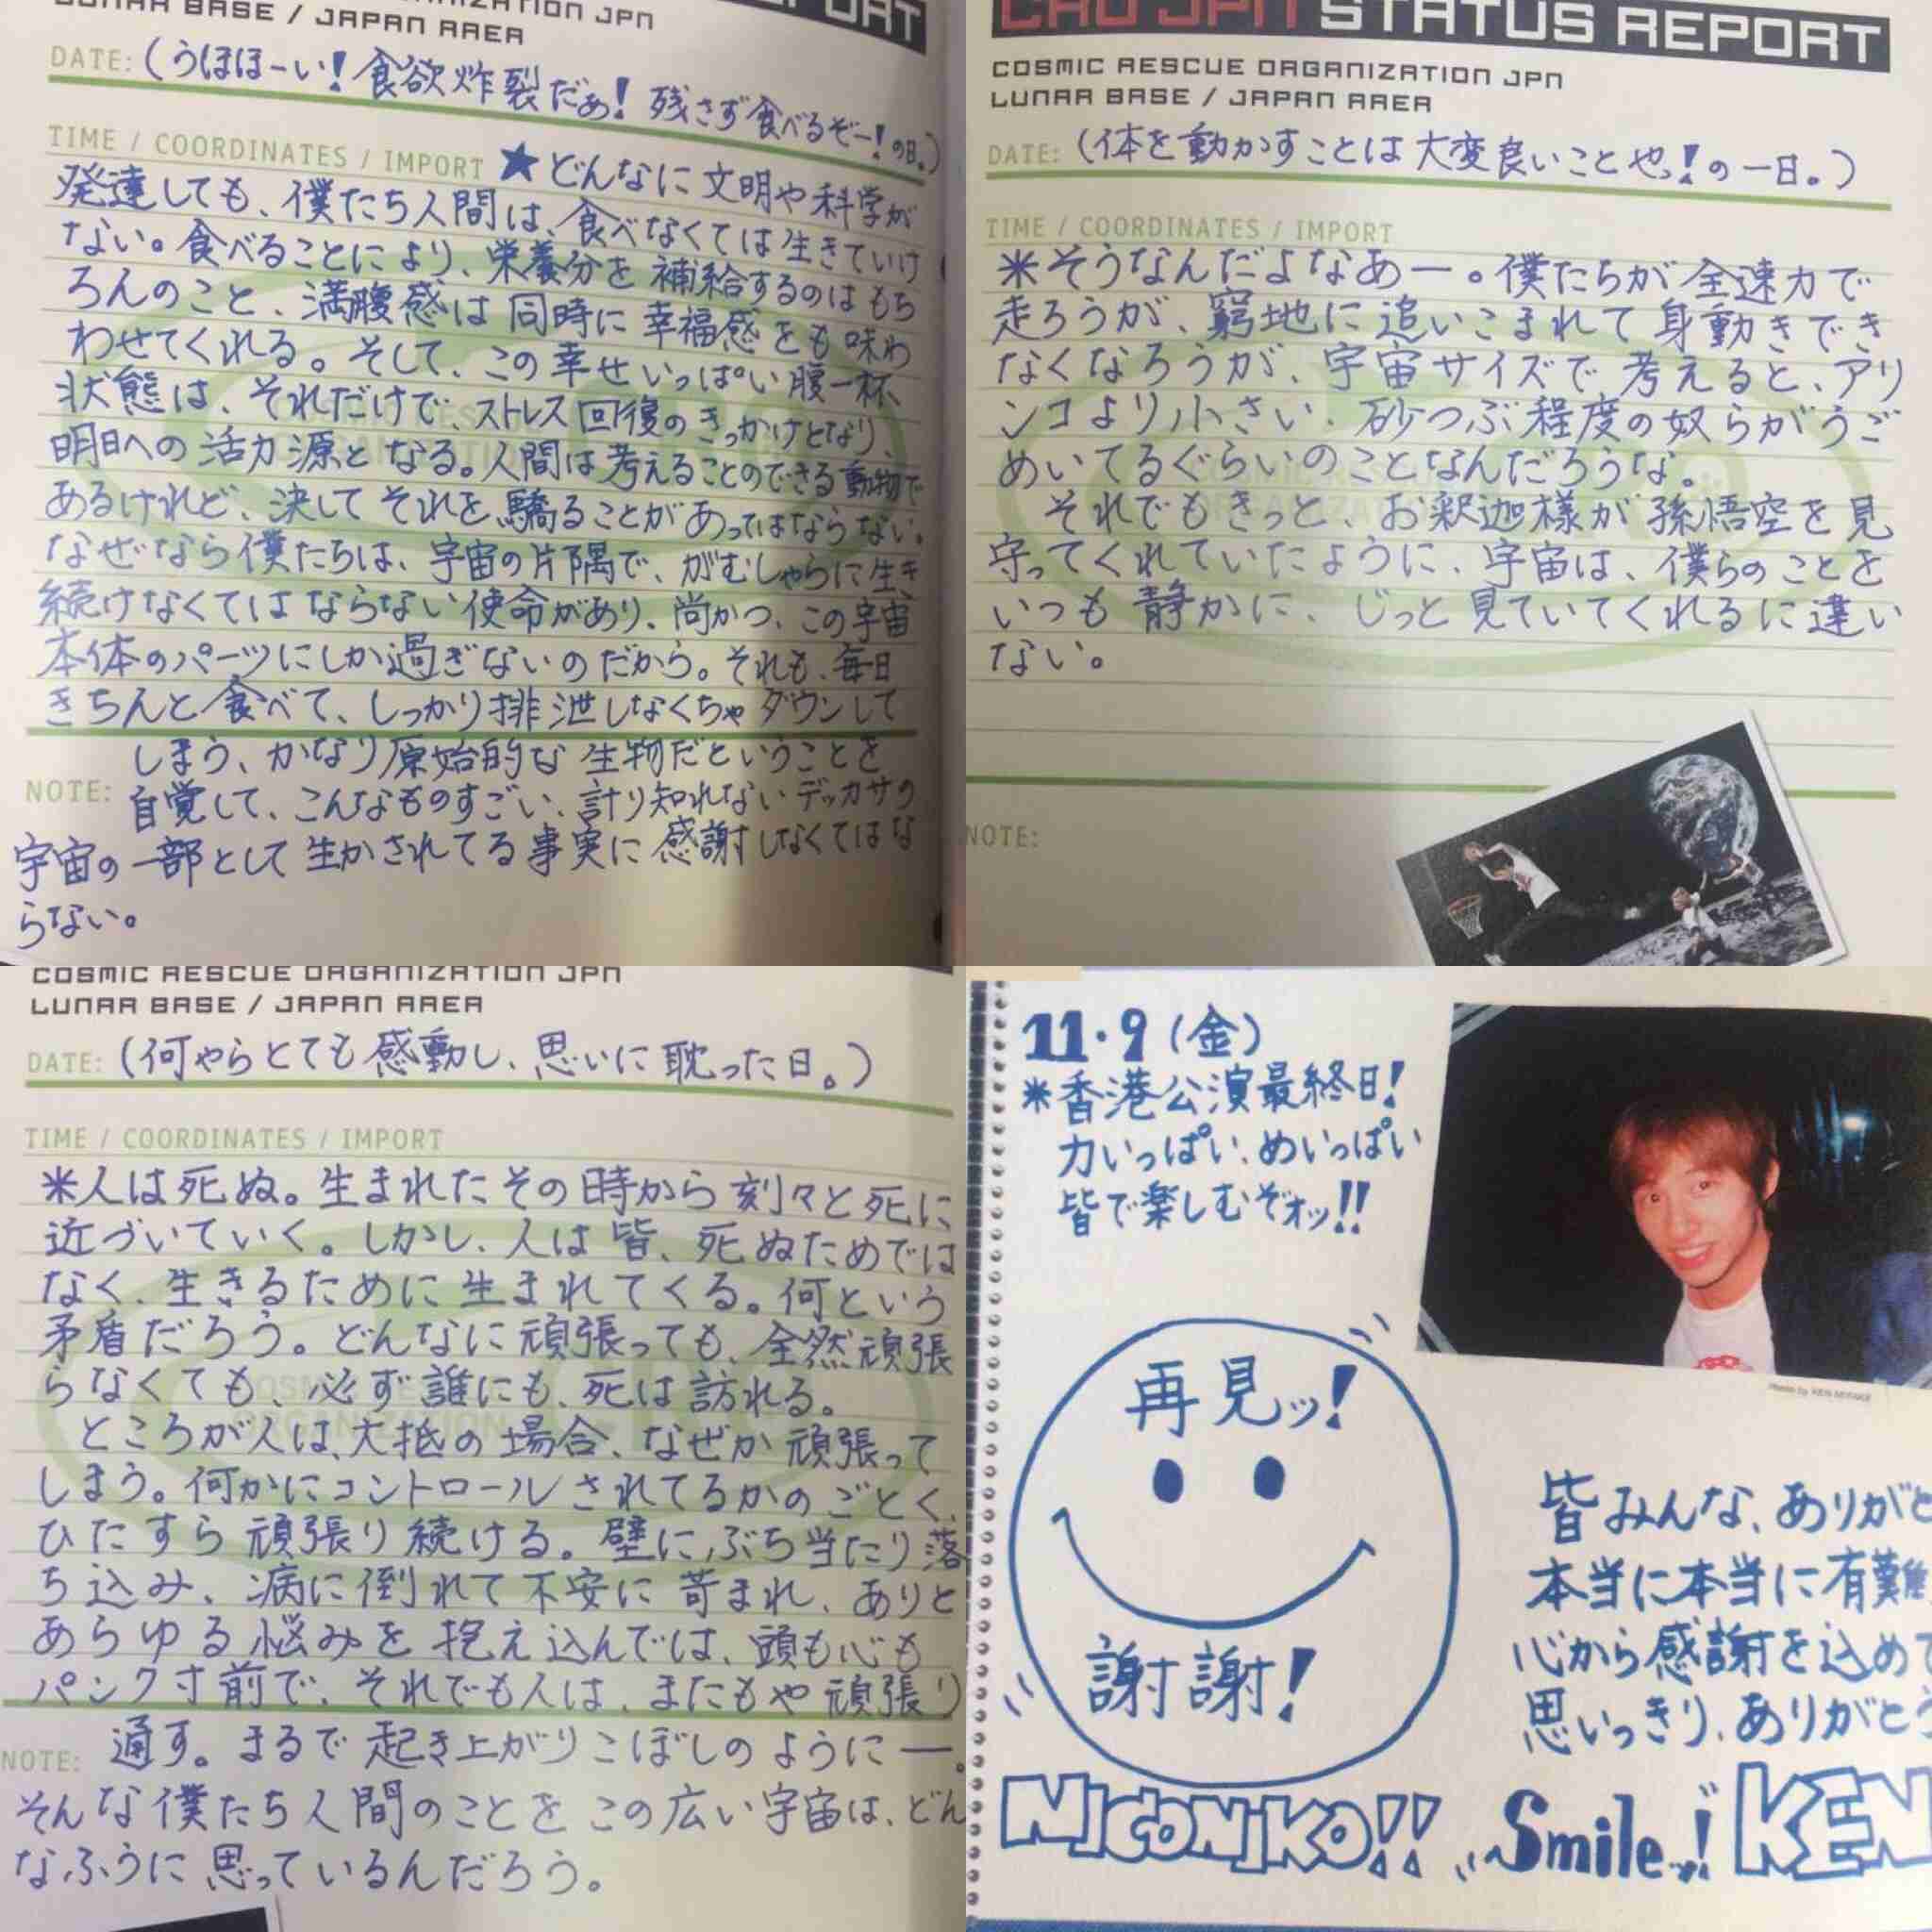 REPORT
ORGANIZATION JPN
LUNAR BASE / JAPAN AREA
DATE: (うほほーい!食欲炸裂だぁ!残さず食べるぞー!の日。)
TIME / COORDINATES / IMPORT ★どんなに文明や科学が
発達しても、僕たち人間は、食べなくては生きていけ
ない。食べることにより、栄養分を補給するのはもち
ろんのこと、満腹感は同時に幸福感をも味わ
わせてくれる。そして、この幸せいっぱい腹一杯
状態は、それだけで、ストレス回復のきっかけとなり、
明日への活力源となる。人間は考えることのできる動物で
あるけれど、決してそれを驕ることがあってはならない。
なぜなら僕たちは、宇宙の片隅で、がむしゃらに生き
続けなくてはならない使命があり、尚かつ、この宇宙
本体のパーツにしか過ぎないのだから。それも、毎日
きちんと食べて、しっかり排泄しなくちゃダウンして
しまう、かなり原始的な生物だということを
NOTE: 自覚して、こんなものすごい、計り知れないデッカサの
宇宙の一部として生かされてる事実に感謝しなくてはな
らない。
CRO JPN STATUS REPORT
COSMIC RESCUE ORGANIZATION JPN
LUNAR BASE / JAPAN AREA
DATE: (体を動かすことは大変良いことや!の一日。)
TIME / COORDINATES / IMPORT
*そうなんだよなあー。僕たちが全速力で
走ろうが、窮地に追いこまれて身動きでき
なくなろうが、宇宙サイズで考えると、アリ
ンコより小さい、砂つぶ程度の奴らがうご
めいてるぐらいのことなんだろうな。
それでもきっと、お釈迦様が孫悟空を見
守ってくれていたように、宇宙は、僕らのことを
いつも静かに、じっと見ていてくれるに違い
ない。
NOTE:
COSMIC RESCUE ORGANIZATION JPN
LUNAR BASE / JAPAN AREA
DATE: (何やらとても感動し、思いに耽った日。)
TIME / COORDINATES / IMPORT
*人は死ぬ。生まれたその時から刻々と死に
近づいていく。しかし、人は皆、死ぬためでは
なく、生きるために生まれてくる。何という
矛盾だろう。どんなに頑張っても、全然頑張
らなくても、必ず誰にも、死は訪れる。
ところが人は、大抵の場合、なぜか頑張って
しまう。何かにコントロールされてるかのごとく、
ひたすら頑張り続ける。壁にぶち当たり落
ち込み、病に倒れて不安に苛まれ、ありと
あらゆる悩みを抱え込んでは、頭も心も
パンク寸前で、それでも人は、またもや頑張り
通す。まるで起き上がりこぼしのように―。
NOTE:
そんな僕たち人間のことをこの広い宇宙は、どん
なふうに思っているんだろう。
11・9(金)
*香港公演最終日!
力いっぱい、めいっぱい
皆で楽しむぞォッ!!
Photo by KEN MIYAKE
再見ッ!
謝謝!
皆みんな、ありがと
本当に本当に有難
心から感謝を込めて
思いっきり、ありがとう
NICONIKO!! Smile! KEN